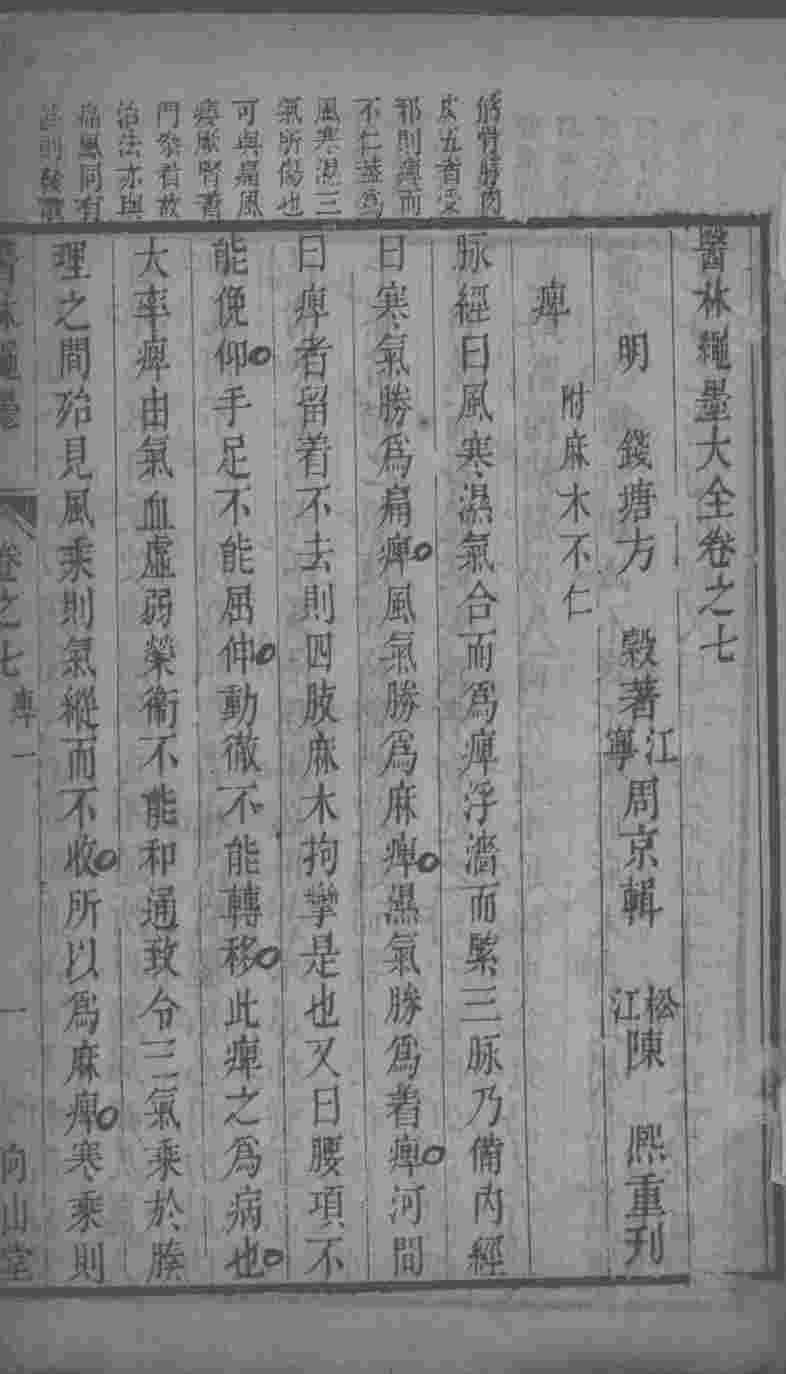 筋骨肌肉
皮五者受
邪則痺而
不仁蓋爲
風寒濕三
氣所傷也
可與痛風
痿厥腎著
門叅看故
治法亦與
痛風同有
醫林繩墨大全卷之七
明　錢塘方　穀著　江寧周京輯　松江陳　熙重刊
痺　附麻木不仁
脉經曰風寒濕氣合而爲痺浮濇而緊三脉乃備內經
曰寒氣勝爲痛痺風氣勝爲麻痺濕氣勝爲着痺河間
曰痺者留着不去則四肢麻木拘攣是也又曰腰項不
能俛仰手足不能屈伸動徹不能轉移此痺之爲病也
大率痺由氣血虛弱榮衞不能和通致令三氣乘於腠
理之間殆見風乘則氣縱而不收所以爲麻痺寒乘則
醫林繩墨　卷之七　痺一　一　向山堂